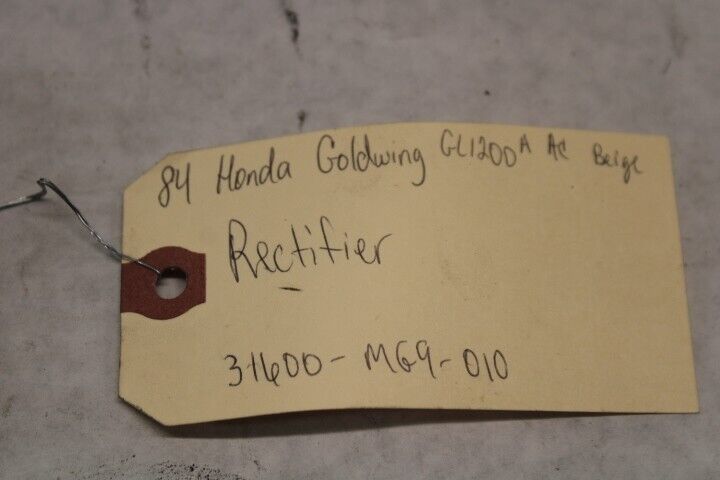 84 Honda Goldwing GL1200A AC Beige
Rectifier
31600-MG9-010